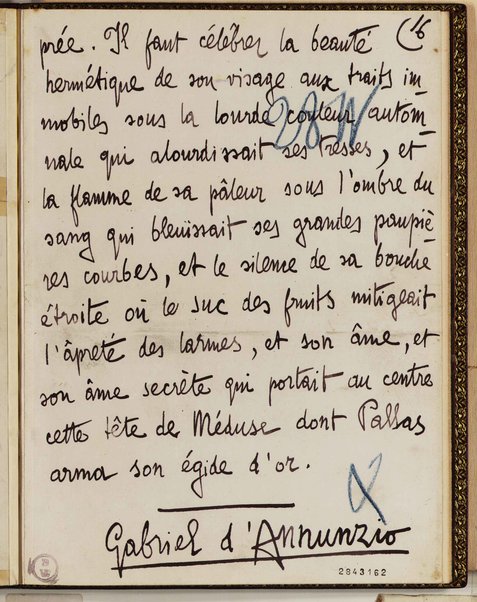 prée. Il faut célébrer la beauté
16
hermétique de son visage aux traits im
mobiles sous la lourde couleur autom-
nale qui alourdissait ses tresses, et
la flamme de sa pâleur sous l'ombre du
sang qui bleuissait ses grandes paupiè
res courbes, et le silence de sa bouche
étroite où le suc des fruits mitigeait
l'âpreté des larmes, et son âme, et
son âme secrète qui portait au centre
cette tête de Méduse dont Pallas
arma son égide d'or.
Gabriel d'Annunzio
2843162